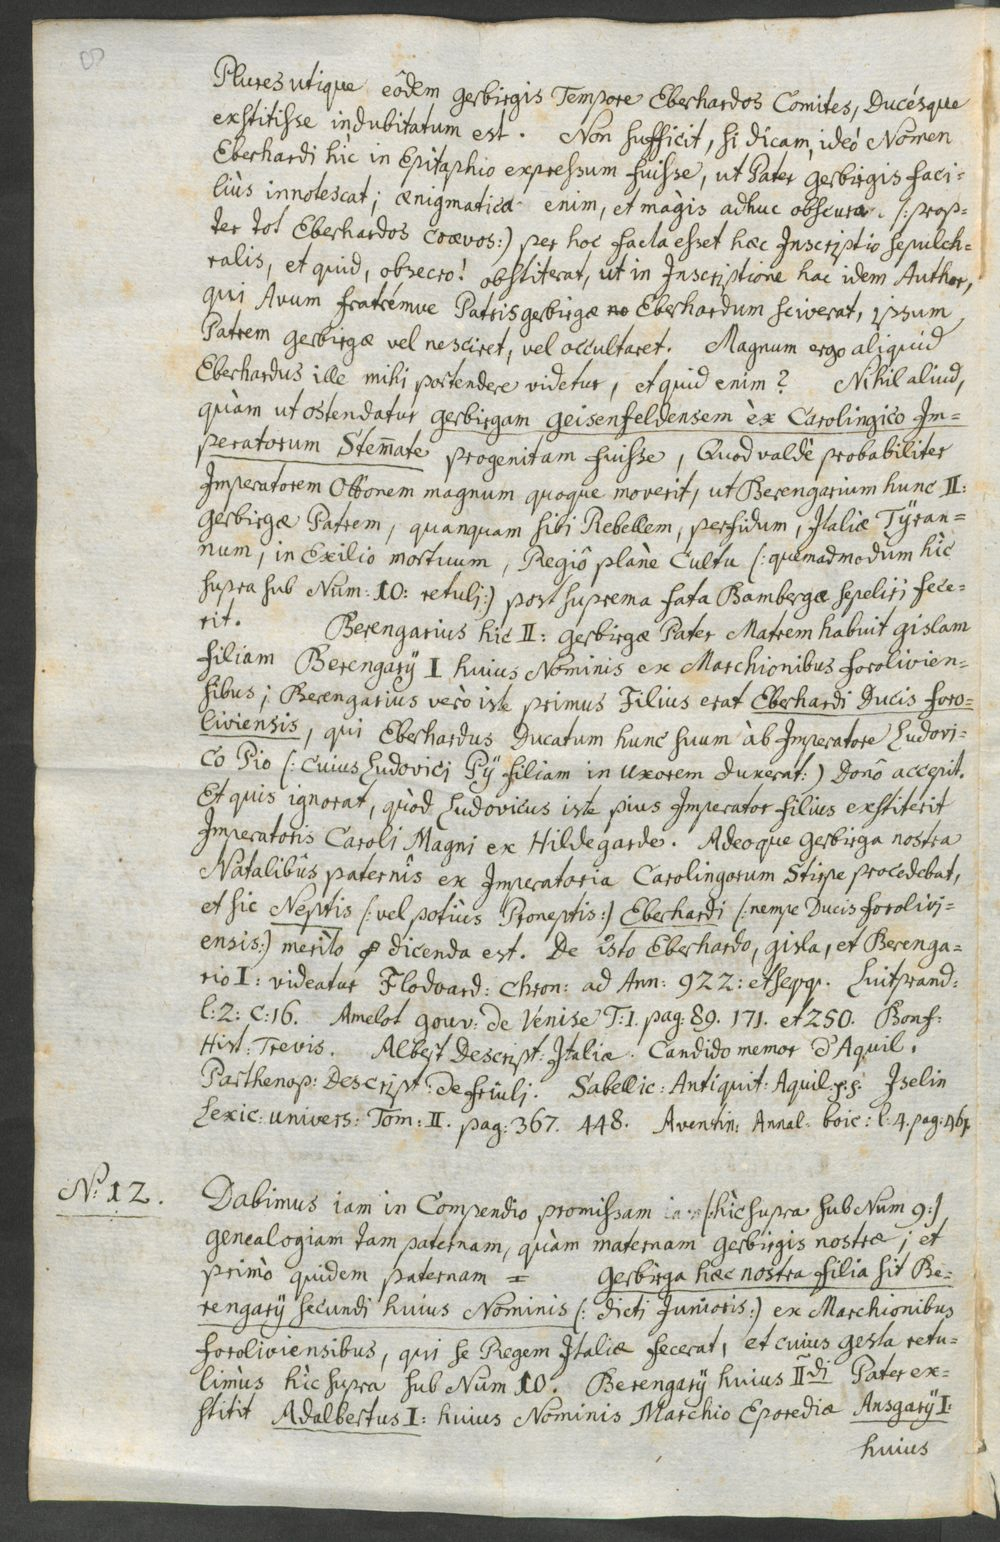 Plures utique eôdem gerbirgis Tempore Eberhardos Comites, Ducésque
exstitisse indubitatum est. Non sufficit, si dicam, ideó Nomen
Eberhardi hìc in Epitaphio expressum fuisse, ut Pater gerbirgis faci=
liùs innotescat; ænigmatica enim, et magis adhuc obscura (: prop=
ter tot Eberhardos coævos:) per hoc facta esset hæc Inscriptio sepulch=
ralis, et quid, obsecro! obstiterat, ut in Inscriptione hac idem Author,
qui Avum fratrémve Patris gerbirgæ Eberhardum sciverat, ipsum
Patrem gerbirgæ vel nesciret, vel occultaret. Magnum ergo aliquid
Eberhardus ille mihi portendere videtur, et quid enim? Nihil aliud,
quàm ut ostendatur gerbirgam geisenfeldensem èx Carolingico Im=
peratorum Stem̄ate progenitam fuisse, Quod valdè probabiliter
Imperatorem Ottonem magnum quoque moverit, ut Berengarium hunc II:
gerbirgæ Patrem, quanquam sibi Rebellem, perfidum, Italiæ Tÿran=
num, in Exilio mortuum, Regiô planè Cultu (: quemadmodùm hìc
supra sub Num: 10: retulj:) post suprema fata Bambergæ sepelirj fece=
rit. Berengarius hic II: gerbirgæ Pater Matrem habuit gislam
filiam Berengarÿ I huius Nominis ex Marchionibus forolivien=
sibus; Berengarius verò iste primus Filius erat Eberhardi Ducis foro=
liviensis, qui Eberhardus Ducatum hunc suum àb Imperatore Ludovi=
co Pio (: cuius Ludovicj Pÿ filiam in uxorem duxerat:) Donô accepit.
Et quis ignorat, quòd Ludovicus iste pius Imperator filius exstiterit
Imperatoris Caroli Magni ex Hildegarde. Adeoque gerbirga nostra
Natalibûs paternîs ex Imperatoria Carolingorum Stirpe procedebat,
et sic Neptis (: vel potiùs Proneptis:) Eberhardi (: nempe Ducis forolivj=
ensis:) meritò dicenda est. De isto Eberhardo, gisla, et Berenga=
rio I: videatur Flodoard: Chron: ad Ann: 922: et seqq. Luitprand:
l: 2: C: 16. Amelot gouv: de Venise T: I. pag: 89. 171. et 250. Bonf:
Hist: Trevis. Albert Descript: Italiæ. Candido memor d'Aquil.
Parthenop: Descript: de friulj. Sabellic: Antiquit: Aquil. Iselin
Lexic: univers: Tom: II. pag: 367. 448. Aventin: Annal. boic: l: 4. pag:
Nº 12. Dabimus iam in Compendio promissam (: hìc supra sub Num 9:)
genealogiam tam paternam, quàm maternam gerbirgis nostræ; et
primò quidem paternam = gerbirga hæc nostra filia fit Be=
rengarÿ secundi huius Nominis (: dicti Junioris:) ex Marchionibus
foroliviensibus, qui se Regem Italiæ fecerat, et cuius gesta retu=
limùs hìc supra sub Num 10. Berengarÿ huius II di Pater ex=
stitit Adalbertus I: huius Nominis Marchio Eporediæ Ansgarÿ I:
huius